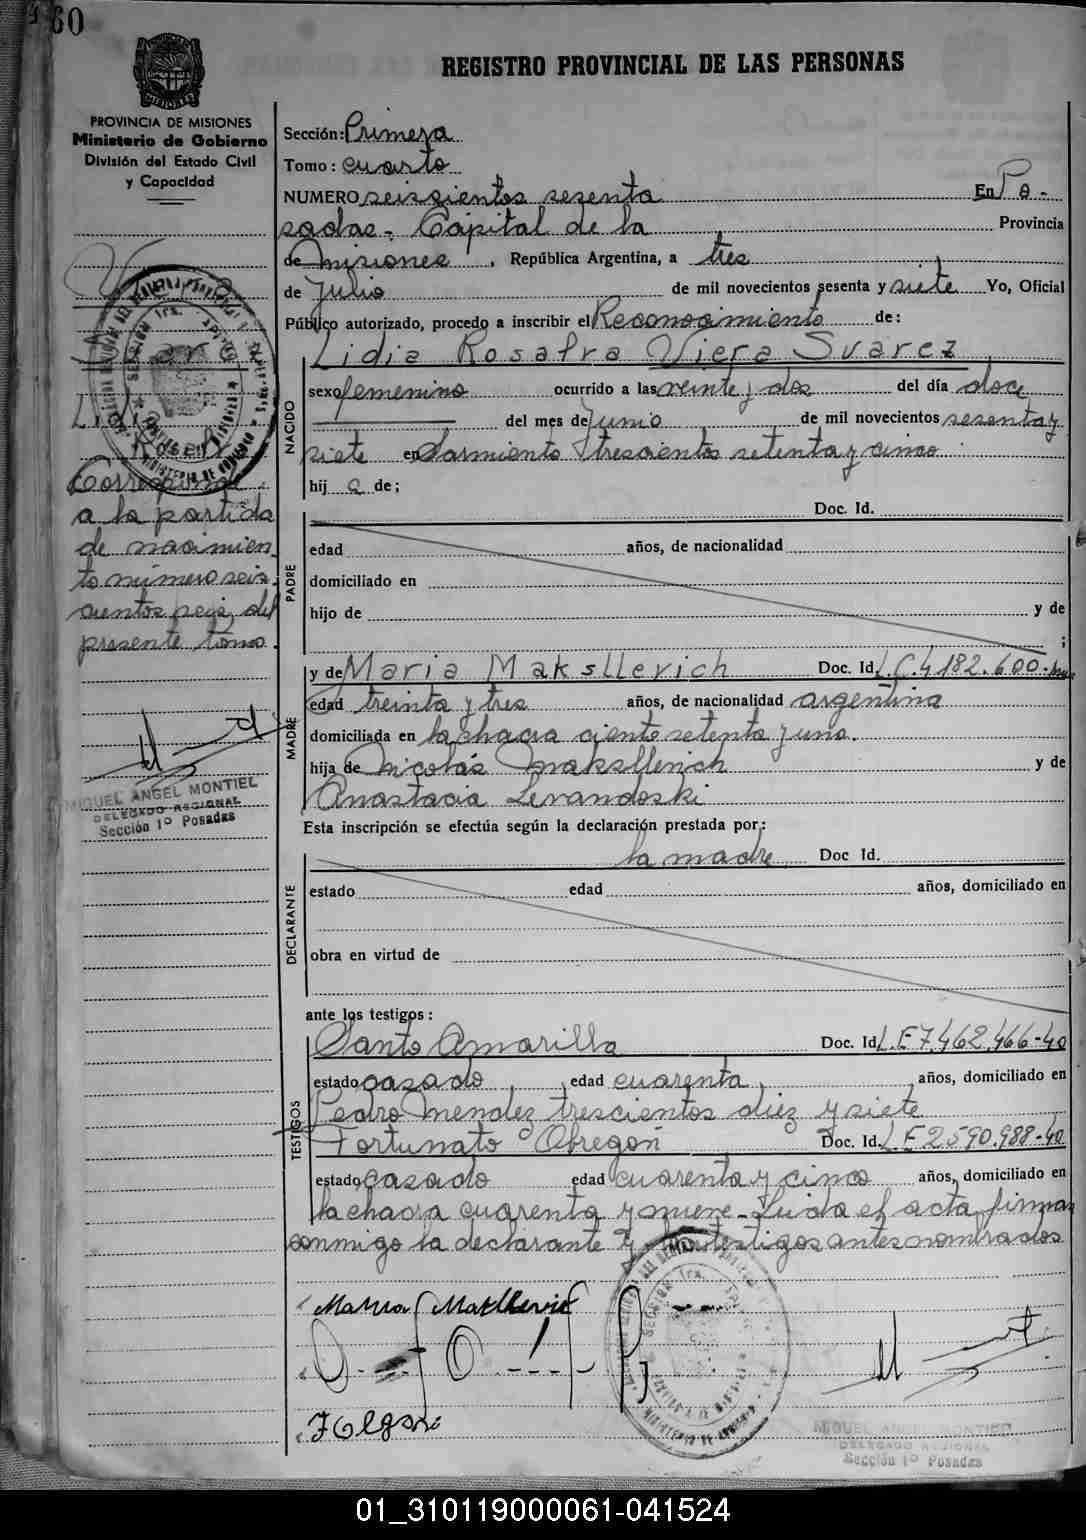 60
REGISTRO PROVINCIAL DE LAS PERSONAS
PROVINCIA DE MISIONES
Ministerio de Gobierno
División del Estado Civil
y Capacidad
Sección: Primera
Tomo: cuarto
NUMERO seiscientos sesenta En Po-
sadas - Capital de la Provincia
de Misiones, República Argentina, a tres
de Julio de mil novecientos sesenta y siete Yo, Oficial
Público autorizado, procedo a inscribir el Reconocimiento de:
Lidia Rosalra Viera Suarez
NACIDO
sexo femenino ocurrido a las veinte y dos del día doce
del mes de Junio de mil novecientos sesenta y
siete en Sarmiento trescientos setenta y cinco
hij a de;
Corresponde
a la partida
de nacimien
to número seis
cientos seis del
presente tomo.
MIGUEL ANGEL MONTIEL
DELEGADO REGIONAL
Sección 1º Posadas
PADRE
Doc. Id.
edad años, de nacionalidad
domiciliado en
hijo de y de
;
MADRE
y de Maria Maksllevich Doc. Id. L.C.4182.600-
edad treinta y tres años, de nacionalidad argentina
domiciliada en la chacra ciento setenta y uno.
hija de Nicolás Maksllevich y de
Anastacia Levandoski
Esta inscripción se efectúa según la declaración prestada por:
DECLARANTE
la madre Doc Id.
estado edad años, domiciliado en
obra en virtud de
ante los testigos:
TESTIGOS
Santo Amarilla Doc. Id. L.E 7.462.466-40
estado casado, edad cuarenta, años, domiciliado en
Pedro Mendez trescientos diez y siete
Fortunato Obregón Doc. Id. L.E 2590.988-40
estado casado edad cuarenta y cinco años, domiciliado en
la chacra cuarenta y nueve - Leida el acta, firman
conmigo la declarante y los testigos antes nombrados
Maria Maksllevich
MIGUEL ANGEL MONTIEL
DELEGADO REGIONAL
Sección 1º Posadas
01_310119000061-041524